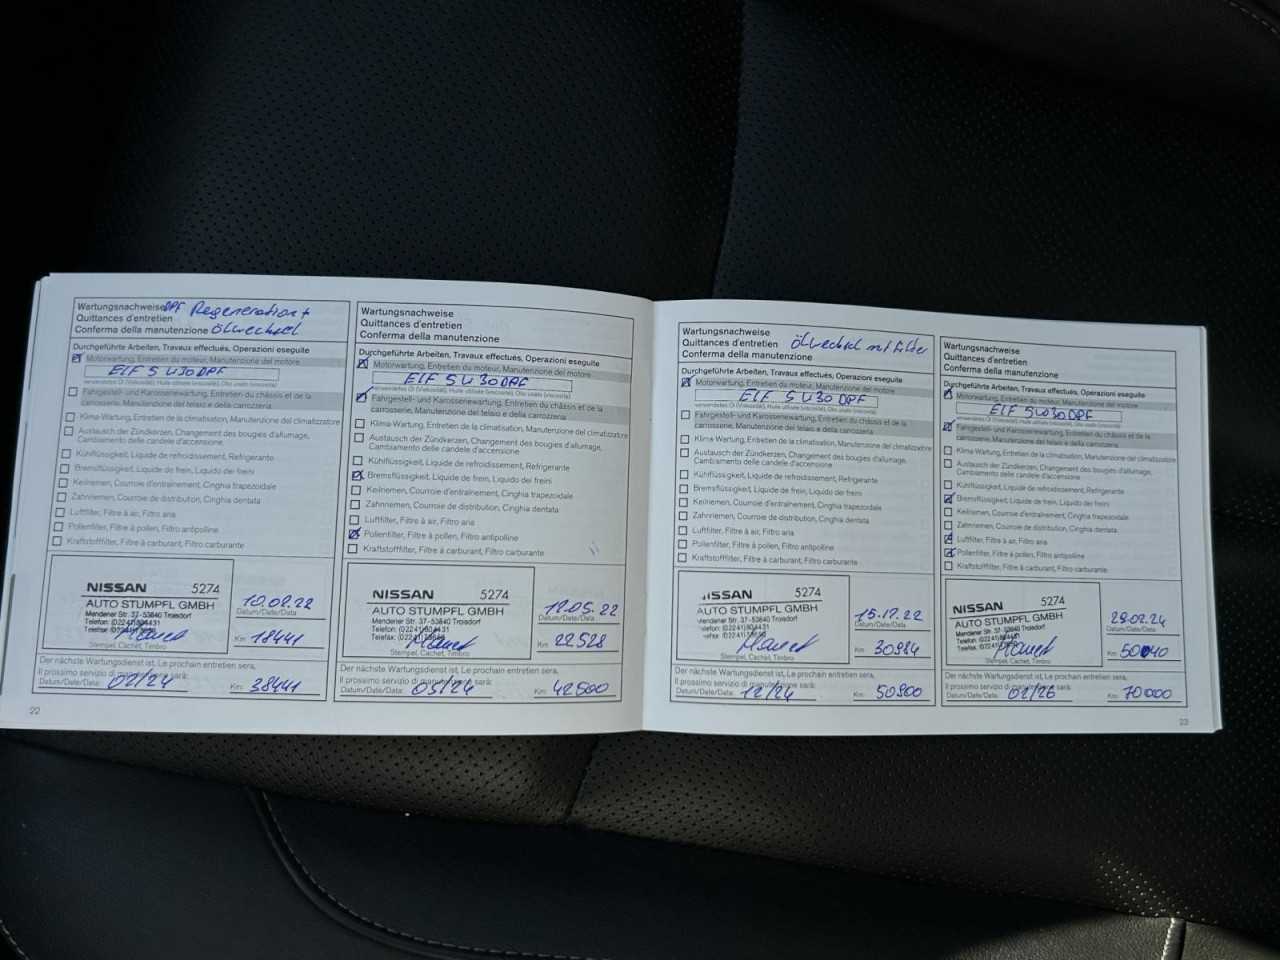 Wartungsnachweise DPF Regeneration +
Quittances d'entretien
Conferma della manutenzione Ölwechsel
Durchgeführte Arbeiten, Travaux effectués, Operazioni eseguite
Motorwartung, Entretien du moteur, Manutenzione del motore
ELF 5W30 DPF
verwendetes Öl (Viskosität), Huile utilisée (viscosité), Olio usato (viscosità)
Fahrgestell- und Karossenwartung, Entretien du châssis et de la
carrosserie, Manutenzione del telaio e della carrozzeria
Klima-Wartung, Entretien de la climatisation, Manutenzione del climatizzatore
Austausch der Zündkerzen, Changement des bougies d'allumage,
Cambiamento delle candele d'accensione
Kühlflüssigkeit, Liquide de refroidissement, Refrigerante
Bremsflüssigkeit, Liquide de frein, Liquido dei freini
Keilriemen, Courroie d'entraînement, Cinghia trapezoidale
Zahnriemen, Courroie de distribution, Cinghia dentata
Luftfilter, Filtre à air, Filtro aria
Pollenfilter, Filtre à pollen, Filtro antipolline
Kraftstofffilter, Filtre à carburant, Filtro carburante
NISSAN 5274
AUTO STUMPFL GMBH
Mendener Str. 37 - 53840 Troisdorf
Stempel, Cachet, Timbro
10.02.22
Datum/Date/Data
Km 18441
Der nächste Wartungsdienst ist, Le prochain entretien sera,
Il prossimo servizio di manutenzione sarà:
Datum/Date/Data: 02/24 Km: 38441
22
Wartungsnachweise
Quittances d'entretien
Conferma della manutenzione
Durchgeführte Arbeiten, Travaux effectués, Operazioni eseguite
Motorwartung, Entretien du moteur, Manutenzione del motore
ELF 5W30 DPF
verwendetes Öl (Viskosität), Huile utilisée (viscosité), Olio usato (viscosità)
Fahrgestell- und Karossenwartung, Entretien du châssis et de la
carrosserie, Manutenzione del telaio e della carrozzeria
Klima-Wartung, Entretien de la climatisation, Manutenzione del climatizzatore
Austausch der Zündkerzen, Changement des bougies d'allumage,
Cambiamento delle candele d'accensione
Kühlflüssigkeit, Liquide de refroidissement, Refrigerante
Bremsflüssigkeit, Liquide de frein, Liquido dei freini
Keilriemen, Courroie d'entraînement, Cinghia trapezoidale
Zahnriemen, Courroie de distribution, Cinghia dentata
Luftfilter, Filtre à air, Filtro aria
Pollenfilter, Filtre à pollen, Filtro antipolline
Kraftstofffilter, Filtre à carburant, Filtro carburante
NISSAN 5274
AUTO STUMPFL GMBH
Mendener Str. 37 - 53840 Troisdorf
Stempel, Cachet, Timbro
.05.22
Datum/Date/Data
Km 22528
Der nächste Wartungsdienst ist, Le prochain entretien sera,
Il prossimo servizio di manutenzione sarà:
Datum/Date/Data: 05/24 Km: 42500
Wartungsnachweise
Quittances d'entretien Ölwechsel mit Filter
Conferma della manutenzione
Durchgeführte Arbeiten, Travaux effectués, Operazioni eseguite
Motorwartung, Entretien du moteur, Manutenzione del motore
ELF 5W30 DPF
verwendetes Öl (Viskosität), Huile utilisée (viscosité), Olio usato (viscosità)
Fahrgestell- und Karossenwartung, Entretien du châssis et de la
carrosserie, Manutenzione del telaio e della carrozzeria
Klima-Wartung, Entretien de la climatisation, Manutenzione del climatizzatore
Austausch der Zündkerzen, Changement des bougies d'allumage,
Cambiamento delle candele d'accensione
Kühlflüssigkeit, Liquide de refroidissement, Refrigerante
Bremsflüssigkeit, Liquide de frein, Liquido dei freini
Keilriemen, Courroie d'entraînement, Cinghia trapezoidale
Zahnriemen, Courroie de distribution, Cinghia dentata
Luftfilter, Filtre à air, Filtro aria
Pollenfilter, Filtre à pollen, Filtro antipolline
Kraftstofffilter, Filtre à carburant, Filtro carburante
NISSAN 5274
AUTO STUMPFL GMBH
Mendener Str. 37 - 53840 Troisdorf
Stempel, Cachet, Timbro
15.12.22
Datum/Date/Data
Km 30984
Der nächste Wartungsdienst ist, Le prochain entretien sera,
Il prossimo servizio di manutenzione sarà:
Datum/Date/Data: 12/24 Km: 50900
Wartungsnachweise
Quittances d'entretien
Conferma della manutenzione
Durchgeführte Arbeiten, Travaux effectués, Operazioni eseguite
Motorwartung, Entretien du moteur, Manutenzione del motore
ELF 5W30 DPF
verwendetes Öl (Viskosität), Huile utilisée (viscosité), Olio usato (viscosità)
Fahrgestell- und Karossenwartung, Entretien du châssis et de la
carrosserie, Manutenzione del telaio e della carrozzeria
Klima-Wartung, Entretien de la climatisation, Manutenzione del climatizzatore
Austausch der Zündkerzen, Changement des bougies d'allumage,
Cambiamento delle candele d'accensione
Kühlflüssigkeit, Liquide de refroidissement, Refrigerante
Bremsflüssigkeit, Liquide de frein, Liquido dei freini
Keilriemen, Courroie d'entraînement, Cinghia trapezoidale
Zahnriemen, Courroie de distribution, Cinghia dentata
Luftfilter, Filtre à air, Filtro aria
Pollenfilter, Filtre à pollen, Filtro antipolline
Kraftstofffilter, Filtre à carburant, Filtro carburante
NISSAN 5274
AUTO STUMPFL GMBH
Mendener Str. 37 - 53840 Troisdorf
Stempel, Cachet, Timbro
29.02.24
Datum/Date/Data
Km 50040
Der nächste Wartungsdienst ist, Le prochain entretien sera,
Il prossimo servizio di manutenzione sarà:
Datum/Date/Data: 02/26 Km: 70000
23